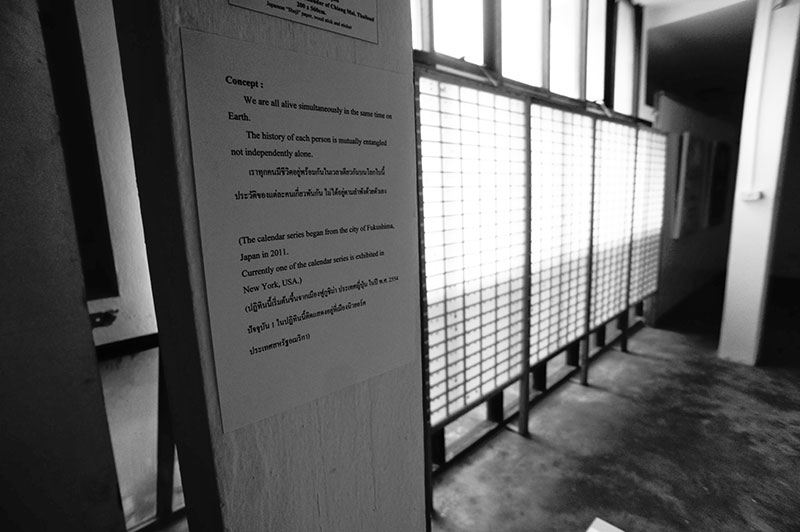 of Chiang Mai, Thailand
200 x 560cm.
Japanese "Shoji" paper, wood stick and sticker
Concept :
We are all alive simultaneously in the same time on
Earth.
The history of each person is mutually entangled
not independently alone.
เราทุกคนมีชีวิตอยู่พร้อมกันในเวลาเดียวกันบนโลกใบนี้
ประวัติของแต่ละคนเกี่ยวพันกัน ไม่ได้อยู่ตามลำพังด้วยตัวเอง
(The calendar series began from the city of Fukushima,
Japan in 2011.
Currently one of the calendar series is exhibited in
New York, USA.)
(ปฏิทินนี้เริ่มต้นขึ้นจากเมืองฟูกูชิม่า ประเทศญี่ปุ่น ในปี พ.ศ. 2554
ปัจจุบัน 1 ในปฏิทินนี้ติดแสดงอยู่ที่เมืองนิวยอร์ค
ประเทศสหรัฐอเมริกา)